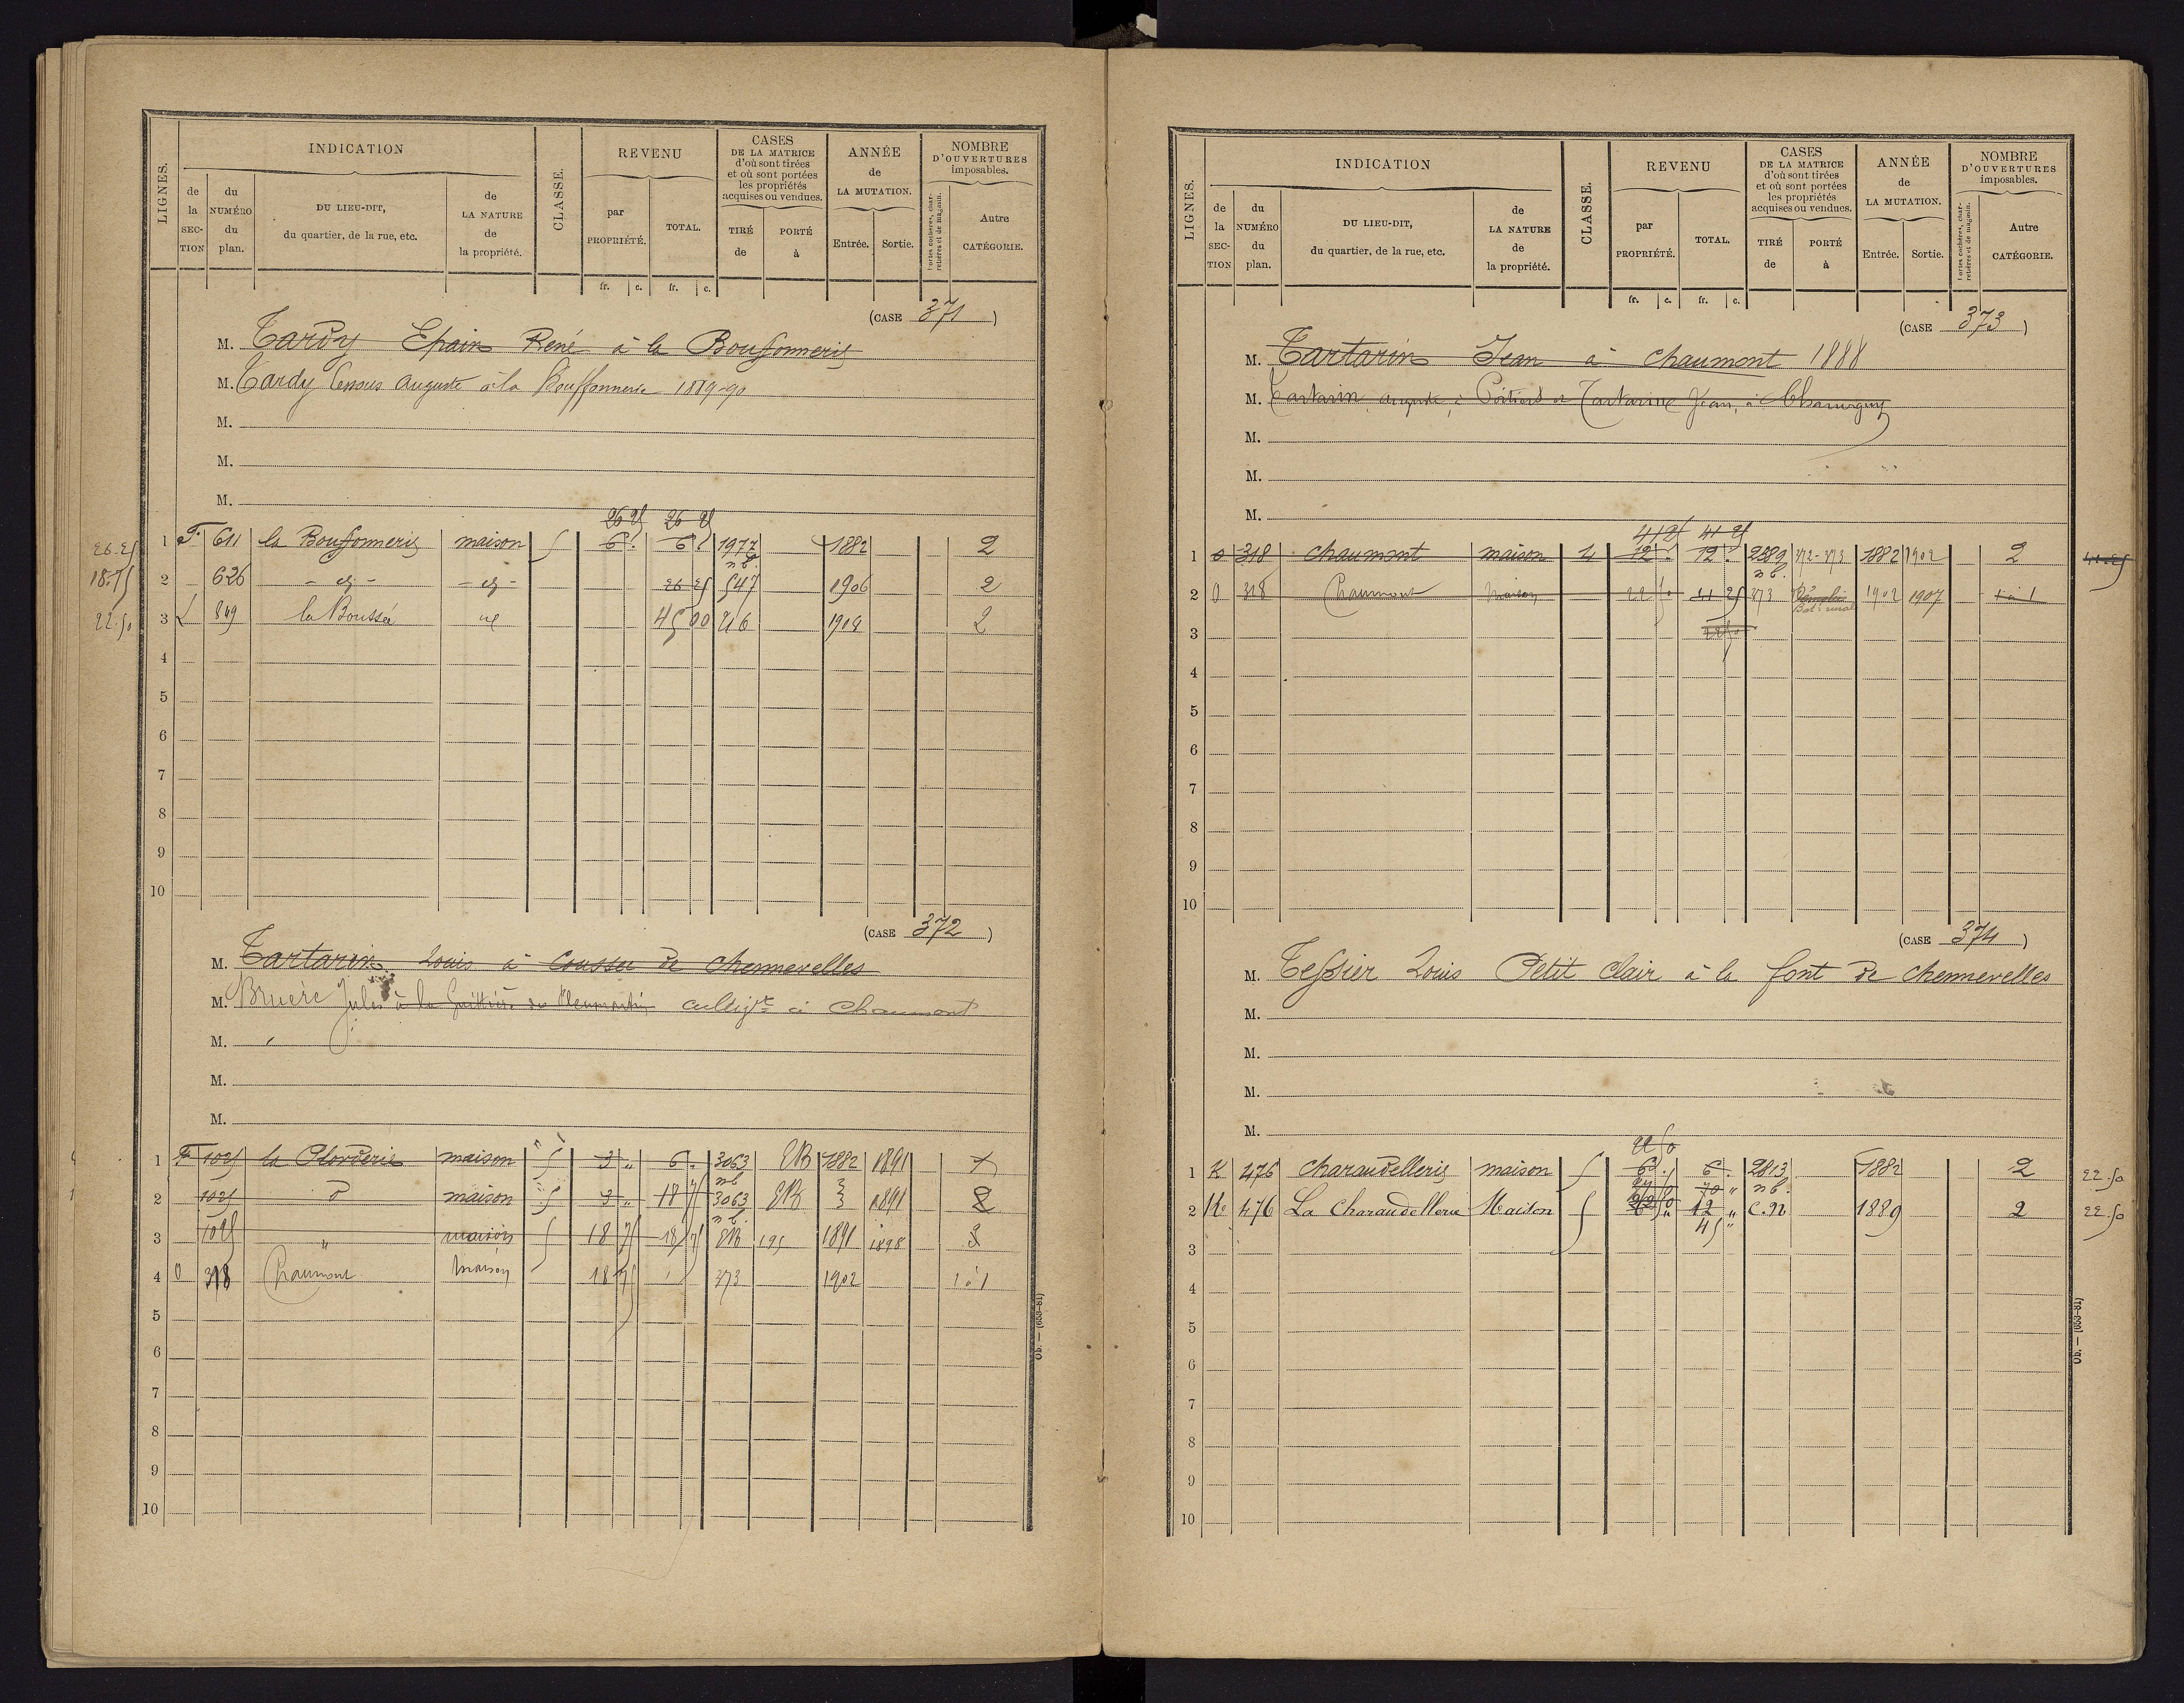 LIGNES.
INDICATION
de la SECTION
du NUMÉRO du plan.
DU LIEU-DIT, du quartier, de la rue, etc.
de LA NATURE de la propriété.
CLASSE.
REVENU
par PROPRIÉTÉ.
TOTAL.
fr. c. fr. c.
CASES DE LA MATRICE d'où sont tirées et où sont portées les propriétés acquises ou vendues.
TIRÉ de
PORTÉ à
ANNÉE de LA MUTATION.
Entrée. Sortie.
NOMBRE D'OUVERTURES imposables.
Portes cochères, charretières et de magasin.
Autre CATÉGORIE.
(CASE 371)
M. Tardy Epain René à la Bouffonnerie
M. Tardy Auguste à la Bouffonnerie 1889-90
M.
M.
M.
26 25 26 25
26.25 1 F. 611 la Bouffonnerie maison 5 6 6 1977 1882 2
n b.
18.75 2 626 26 25 547 1906 2
22.50 3 L 849 la Boussée 45 00 216 1908 2
4
5
6
7
8
9
10
(CASE 372)
M. Tartarin Louis à Coussec de chennevelles
M. Bruère Jules à la de Pleumartin cultivr à Chaumont
M.
M.
M.
1 F 1025 la Plorderie maison 5 3 " 6 . 3063 EB 1882 1891
nb
2 1025 d maison 5 3 " 18 75 3063 EB 1891 2
n b.
3 1025 " maison 5 18 75 18 75 EB 195 1891 1898
4 O 318 Chaumont Maison 18 75 373 1902 1 à 1
5
6
7
8
9
10
Ob. — (653-81)
LIGNES.
INDICATION
de la SECTION
du NUMÉRO du plan.
DU LIEU-DIT, du quartier, de la rue, etc.
de LA NATURE de la propriété.
CLASSE.
REVENU
par PROPRIÉTÉ.
TOTAL.
fr. c. fr. c.
CASES DE LA MATRICE d'où sont tirées et où sont portées les propriétés acquises ou vendues.
TIRÉ de
PORTÉ à
ANNÉE de LA MUTATION.
Entrée. Sortie.
NOMBRE D'OUVERTURES imposables.
Portes cochères, charretières et de magasin.
Autre CATÉGORIE.
(CASE 373)
M. Tartarin Jean à chaumont 1888
M. Tartarin auguste à Poitiers et Tartarin Jean, à Chauvigny
M.
M.
M.
41 25 41 25
1 o 318 chaumont maison 4 12 . 12 . 2389 372-373 1882 1902 2 41.25
n b.
2 O 318 Chaumont Maison 22 50 41 25 373 Démolie 1902 1907 1 à 1
Bat. rural
3 22 50
4
5
6
7
8
9
10
(CASE 374)
M. Tessier Louis Petit clair à la font de chennevelles
M.
M.
M.
M.
22 50
1 K 476 charaudellerie maison 5 6 . 6 . 2813 1882 2 22.50
n b.
2 K. 476 La Charaudellerie Maison 5 12 " C.N 1889 2 22.50
45 "
3
4
5
6
7
8
9
10
Ob. — (653-81)